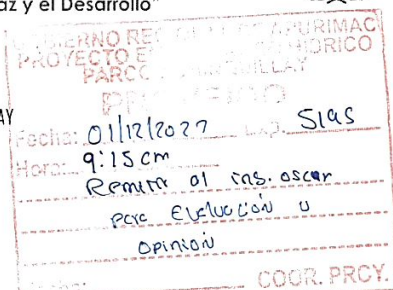 az y el Desarrollo"
GOBIERNO REGIONAL DE APURIMAC
PROYECTO E HIDRICO
PARCC
AY
PROVEIDO
Fecha: 01/12/2022 Exp. S195
Hora: 9:15 am
Remitir al ing. oscar
para Evaluación u
opinión
COOR. PRCY.